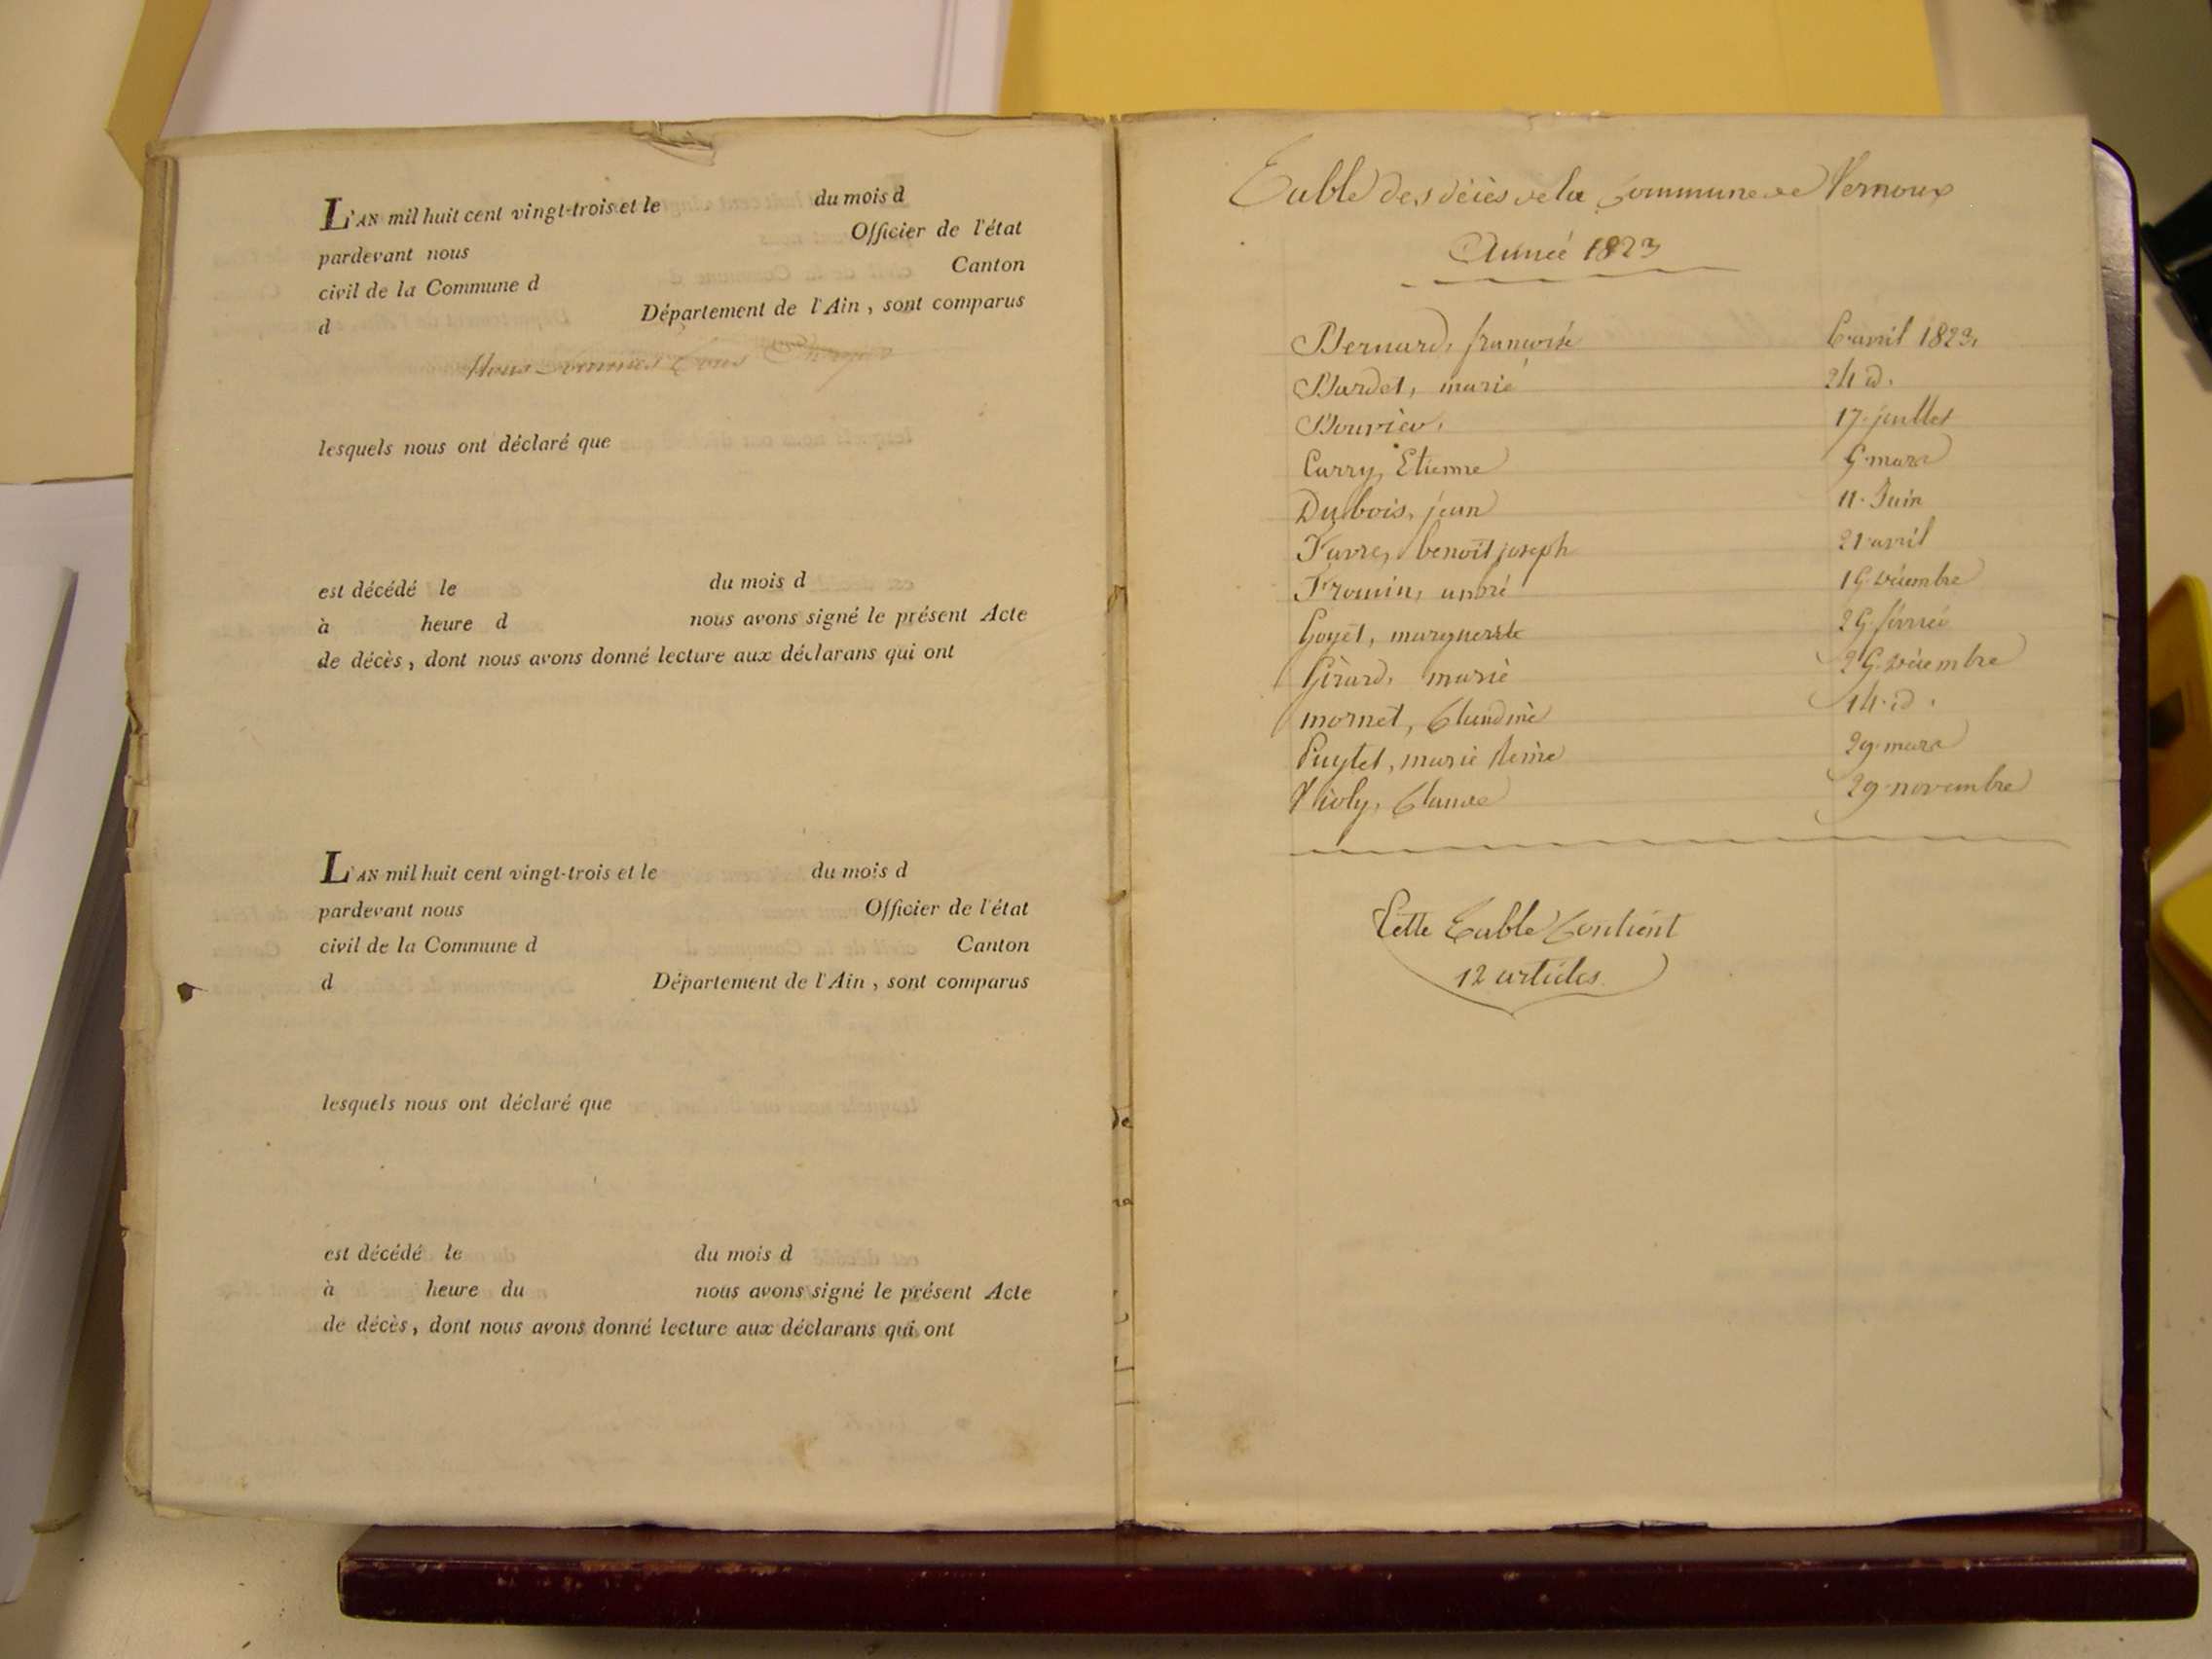 L'AN mil huit cent vingt-trois et le du mois d
pardevant nous Officier de l'état
civil de la Commune d Canton
d Département de l'Ain, sont comparus
Nous sommes tous
lesquels nous ont déclaré que
est décédé le du mois d
à heure d nous avons signé le présent Acte
de décès, dont nous avons donné lecture aux déclarans qui ont
L'AN mil huit cent vingt-trois et le du mois d
pardevant nous Officier de l'état
civil de la Commune d Canton
d Département de l'Ain, sont comparus
lesquels nous ont déclaré que
est décédé le du mois d
à heure du nous avons signé le présent Acte
de décès, dont nous avons donné lecture aux déclarans qui ont
Table des décès de la Commune de Vernoux
Année 1823
Bernard, francoise 6 avril 1823,
Burdet, marie 24 id.
Bouvier, 17. juillet
Carry, Etienne mars
Dubois, jean 11. Juin
Favre, benoit joseph 21 avril
Fromin, andré décembre
Goyet, marguerite février
Girard, marie décembre
mornet, Claudine 14. id.
Puytet, marie Reine 29. mars
Violy, Claude 29. novembre
Cette Table Contient
12 articles.